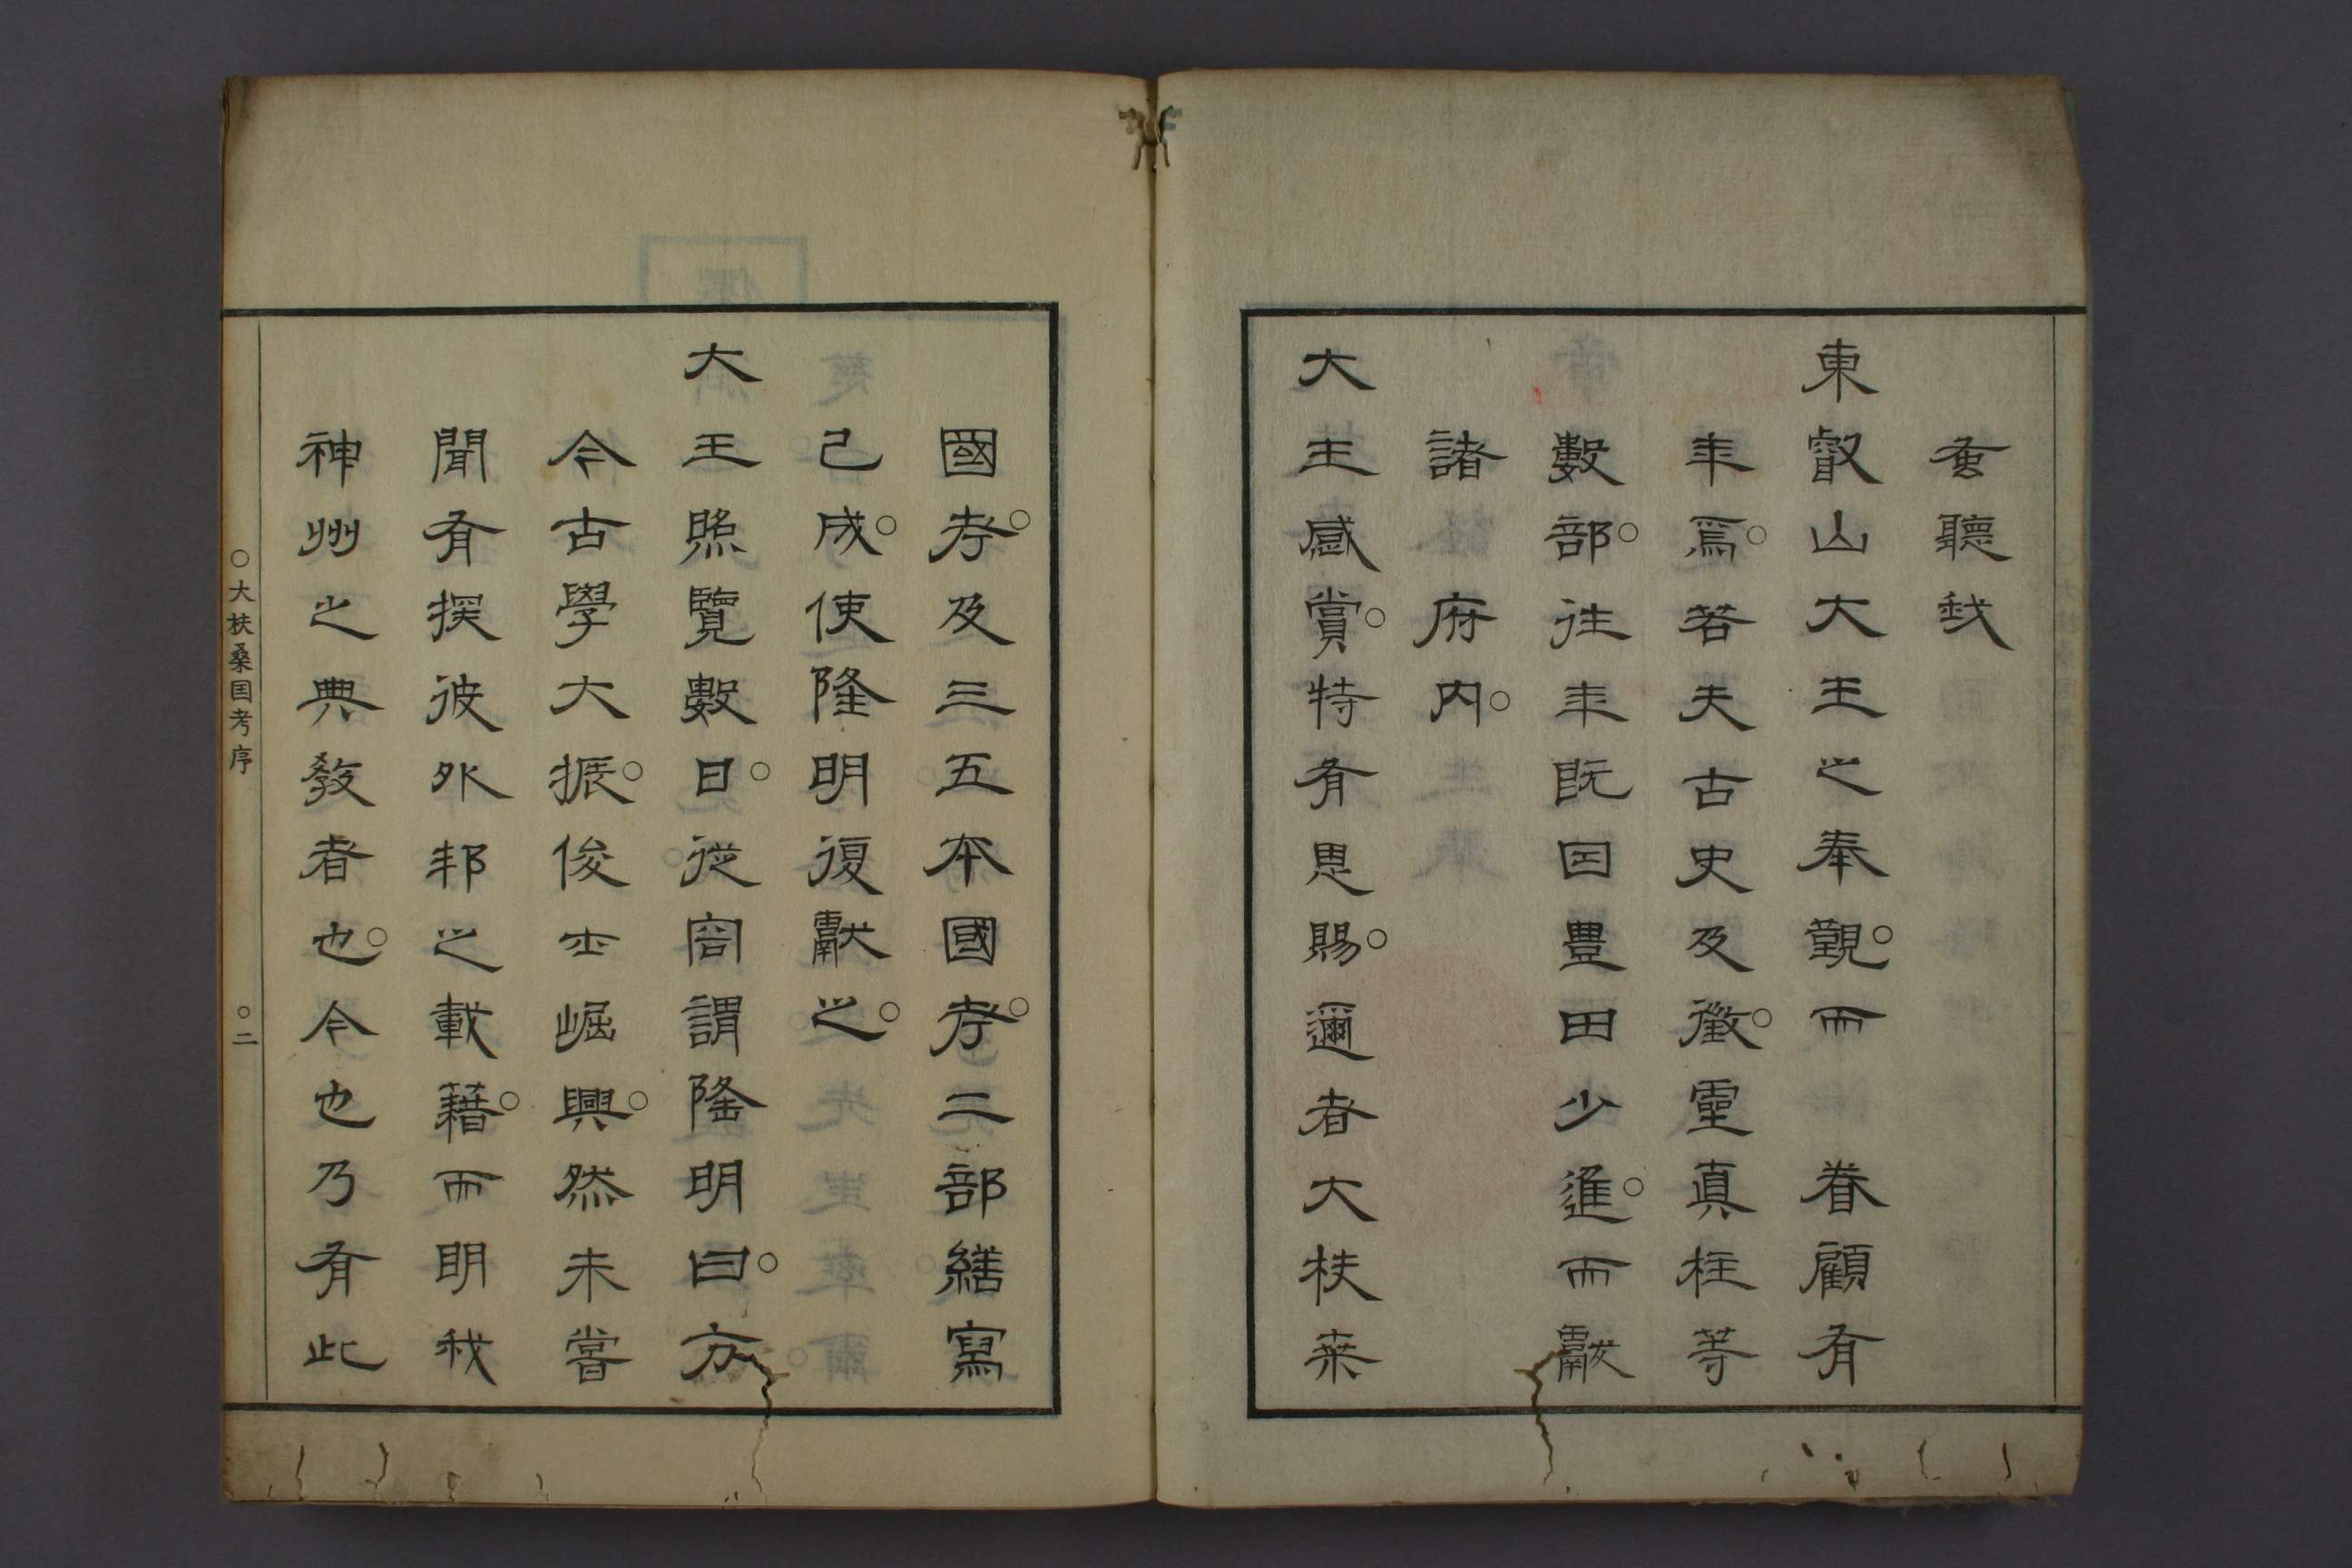 奎聽我
東叡山大王之奉覲。而　眷顧有
年焉。若夫古史及徵。靈真柱等
數部。往年既因豊田少進。而獻
諸府内。
大王感賞。特有恩賜。邇者大扶桒
國考。及三五本國考。二部繕寫
已成。使隆明復獻之。
大王照覽數日。從容謂隆明曰。方
今古學大振。俊士崛興。然未嘗
聞有探彼外邦之載藉。而明我
神州之典敎者也。今也乃有此
○大扶桑国考序　○二